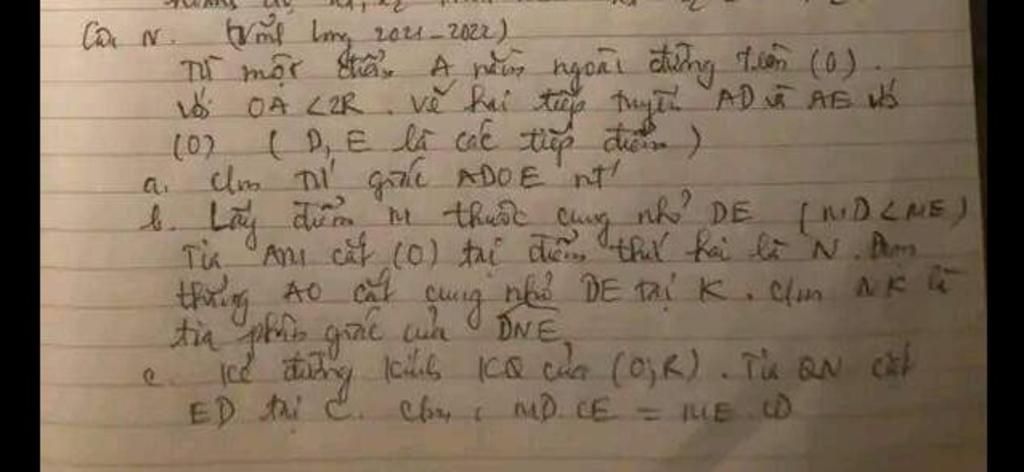 Câu IV. (Vĩnh Long 2021-2022)
Từ một điểm A nằm ngoài đường tròn (O).
với OA < 2R. Vẽ hai tiếp tuyến AD và AE với
(O) ( D, E là các tiếp điểm )
a. Cm Tứ giác ADOE nt
b. Lấy điểm M thuộc cung nhỏ DE (MD < ME)
Tia AM cắt (O) tại điểm thứ hai là N. Đoạn
thẳng AO cắt cung nhỏ DE tại K. Cm NK là
tia phân giác của DNE
c. Kẻ đường kính KQ của (O;R). Tia QN cắt
ED tại C. Cm: MD.CE = ME.CD